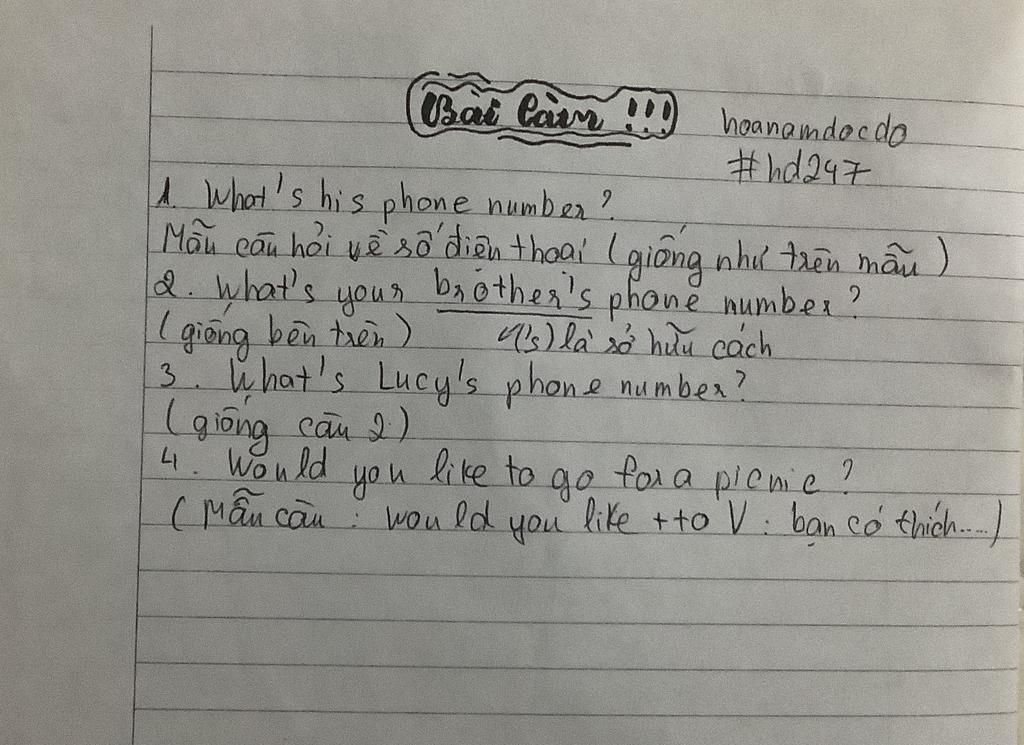 Bài làm !!!
hoanamdocdo
#hd247
1. What's his phone number?
Mẫu câu hỏi về số điện thoại (giống như trên mẫu)
2. What's your brother's phone number?
(giống bên trên) ('s) là sở hữu cách
3. What's Lucy's phone number?
(giống câu 2)
4. Would you like to go for a picnic?
(Mẫu câu: would you like + to V: bạn có thích....)